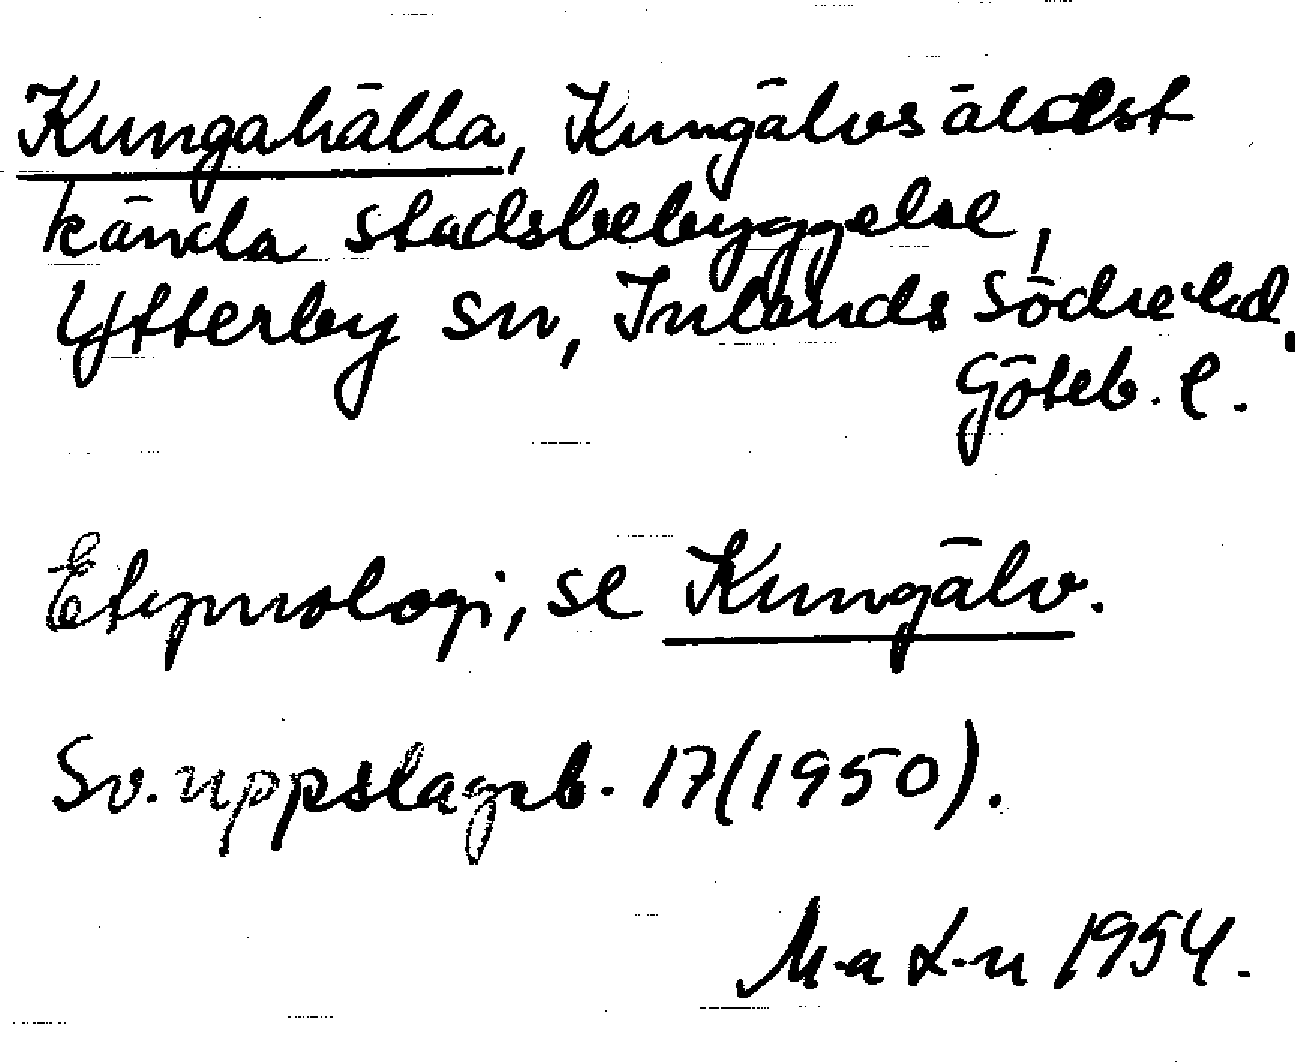 Kungahälla, Kungälvs äldst
kända stadsbebyggelse,
Ytterby sn, Inlands Södre hd,
Göteb. l.
Etymologi, se Kungälv.
Sv. uppslagsb. 17 (1950).
M-a L-n 1954.